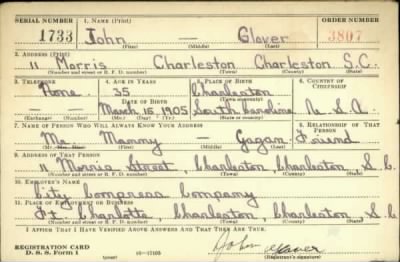 SERIAL NUMBER 1. NAME (Print) ORDER NUMBER
1733 John Glover 3807
(First) (Middle) (Last)
2. ADDRESS (Print)
11 Morris Charleston Charleston S.C.
(Number and street or R. F. D. number) (Town) (County) (State)
3. TELEPHONE 4. AGE IN YEARS 5. PLACE OF BIRTH 6. COUNTRY OF CITIZENSHIP
None 35 Charleston
(Town or county)
DATE OF BIRTH
March 15, 1905 South Carolina U.S.A.
(Exchange) (Number) (Mo.) (Day) (Yr.) (State or country)
7. NAME OF PERSON WHO WILL ALWAYS KNOW YOUR ADDRESS 8. RELATIONSHIP OF THAT PERSON
Mr. Mammy Gagan Friend
(Mr., Mrs., Miss) (First) (Middle) (Last)
9. ADDRESS OF THAT PERSON
11 Morris Street, Charleston, Charleston, S.C.
(Number and street or R. F. D. number) (Town) (County) (State)
10. EMPLOYER'S NAME
City Compress Company
11. PLACE OF EMPLOYMENT OR BUSINESS
Ft Charlotte, Charleston, Charleston, S.C
(Number and street or R. F. D. number) (Town) (County) (State)
I AFFIRM THAT I HAVE VERIFIED ABOVE ANSWERS AND THAT THEY ARE TRUE.
REGISTRATION CARD
D. S. S. Form 1 (over) 16—17105 John Glover
(Registrant's signature)